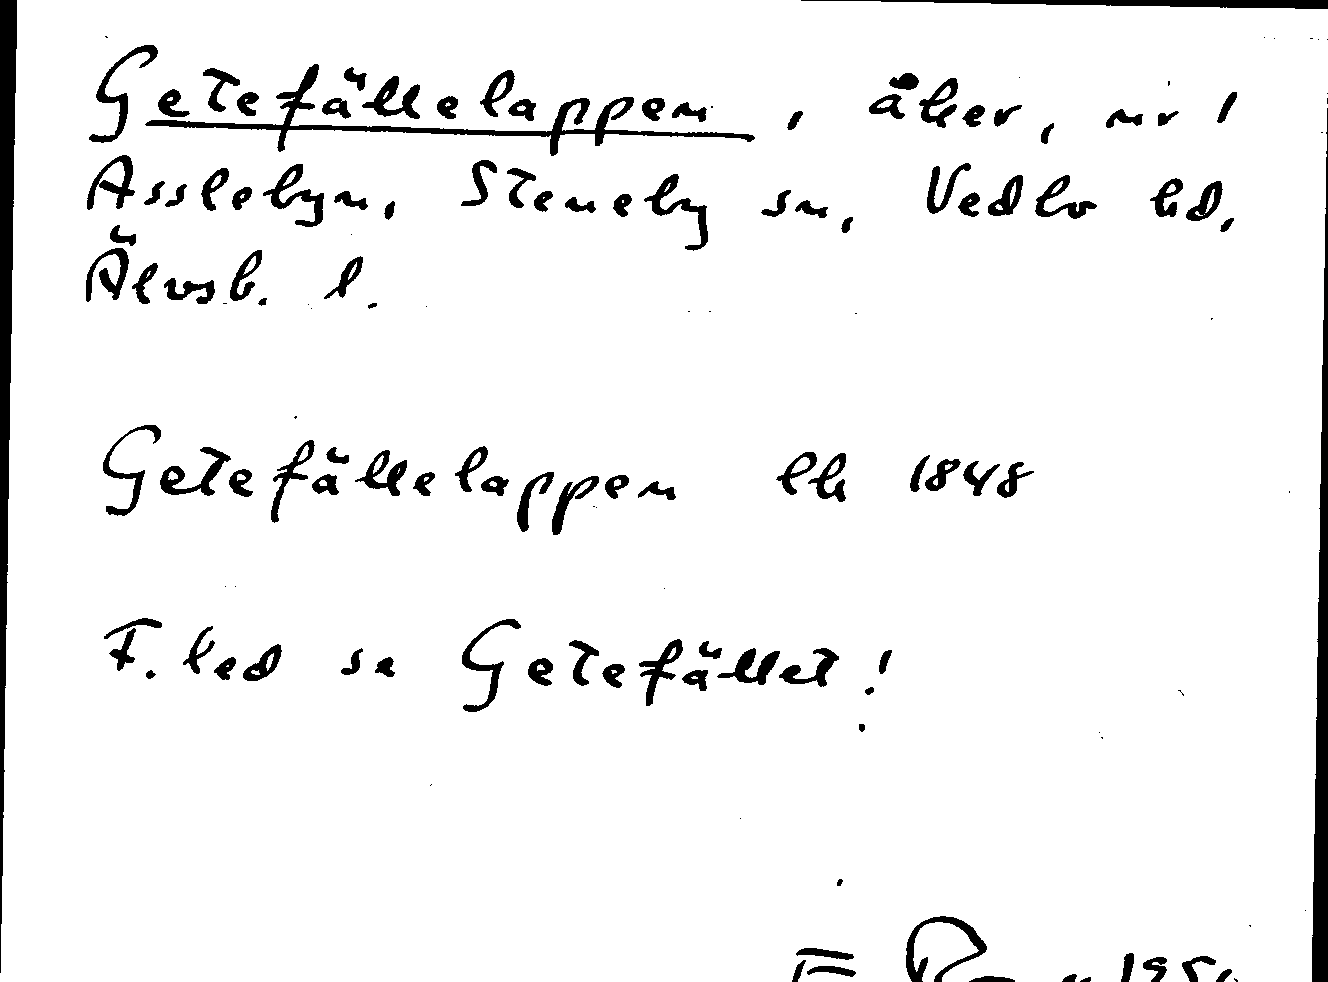 Getefällelappen, åker, nr 1
Asslebyn, Steneby sn, Vedbo hd,
Älvsb. l.
Getefällelappen lh 1848
F. led se Getefället!